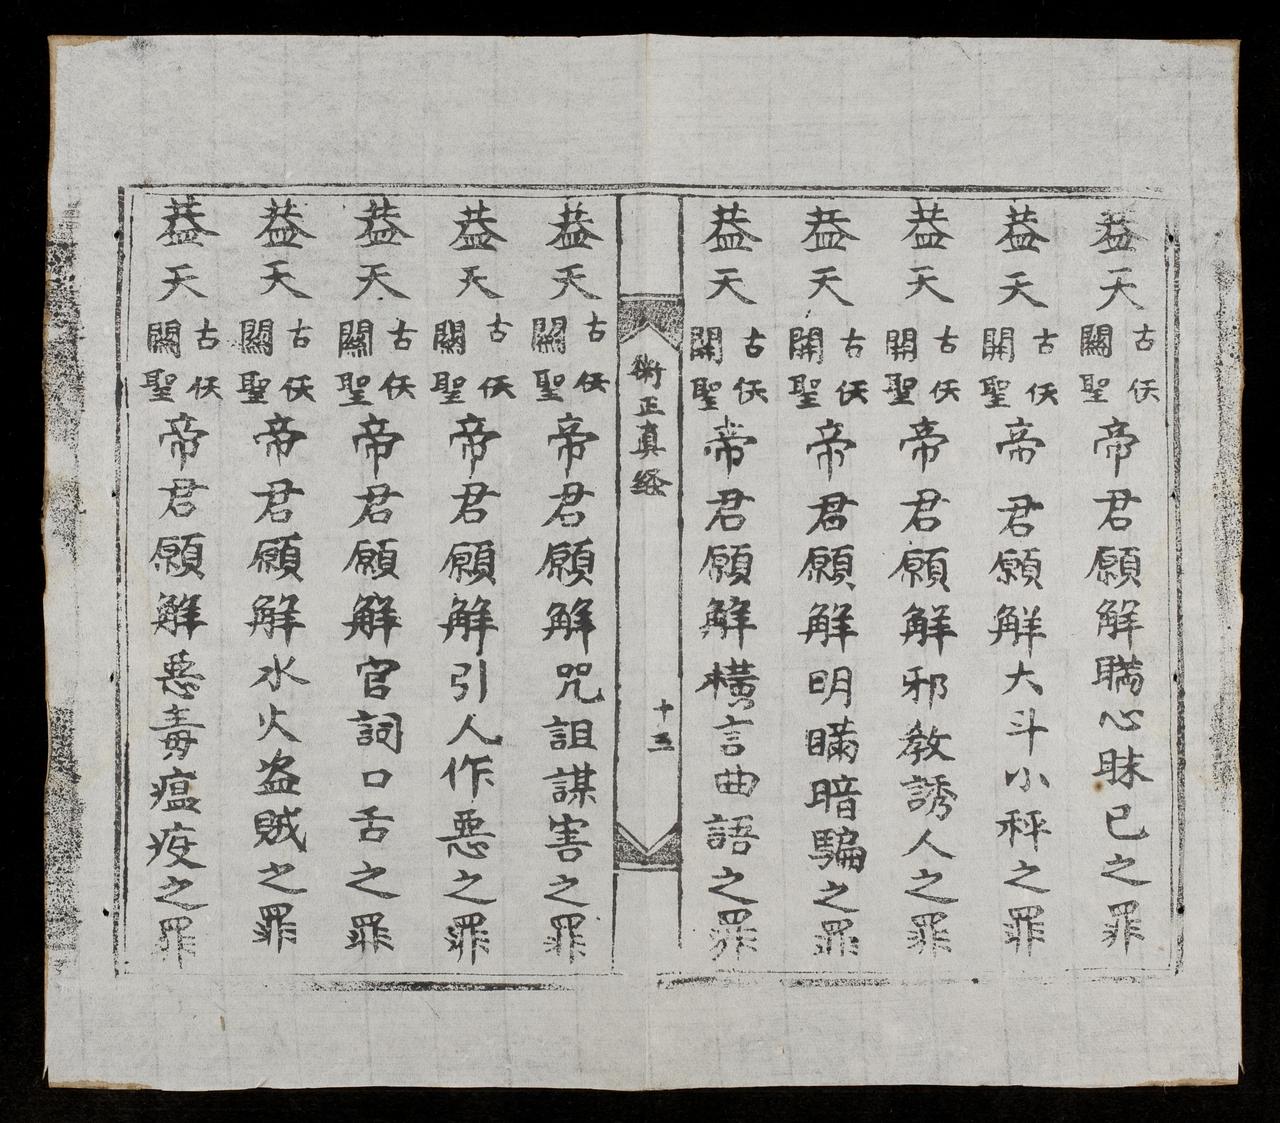 葢天古仸關聖帝君願解瞞心昧己之罪
葢天古仸關聖帝君願解大斗小秤之罪
葢天古仸關聖帝君願解邪教誘人之罪
葢天古仸關聖帝君願解明瞞暗騙之罪
葢天古仸關聖帝君願解橫言曲語之罪
術正真経
十五
葢天古仸關聖帝君願解咒詛謀害之罪
葢天古仸關聖帝君願解引人作惡之罪
葢天古仸關聖帝君願解官詞口舌之罪
葢天古仸關聖帝君願解水火盜賊之罪
葢天古仸關聖帝君願解惡毒瘟疫之罪